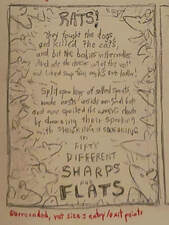 RATS!
They fought the dogs
and killed the cats
and bit the babies in the cradles
And ate the cheeses out of the vats
and licked soup from cook's own ladles
Split open kegs of salted sprats
made nests inside men's Sunday hats
and even spoiled the women's chats
by drowning their speaking
with shrieking & squeaking
IN
FIFTY
DIFFERENT
SHARPS
& FLATS
Surrounded, rat sizes & entry/exit points